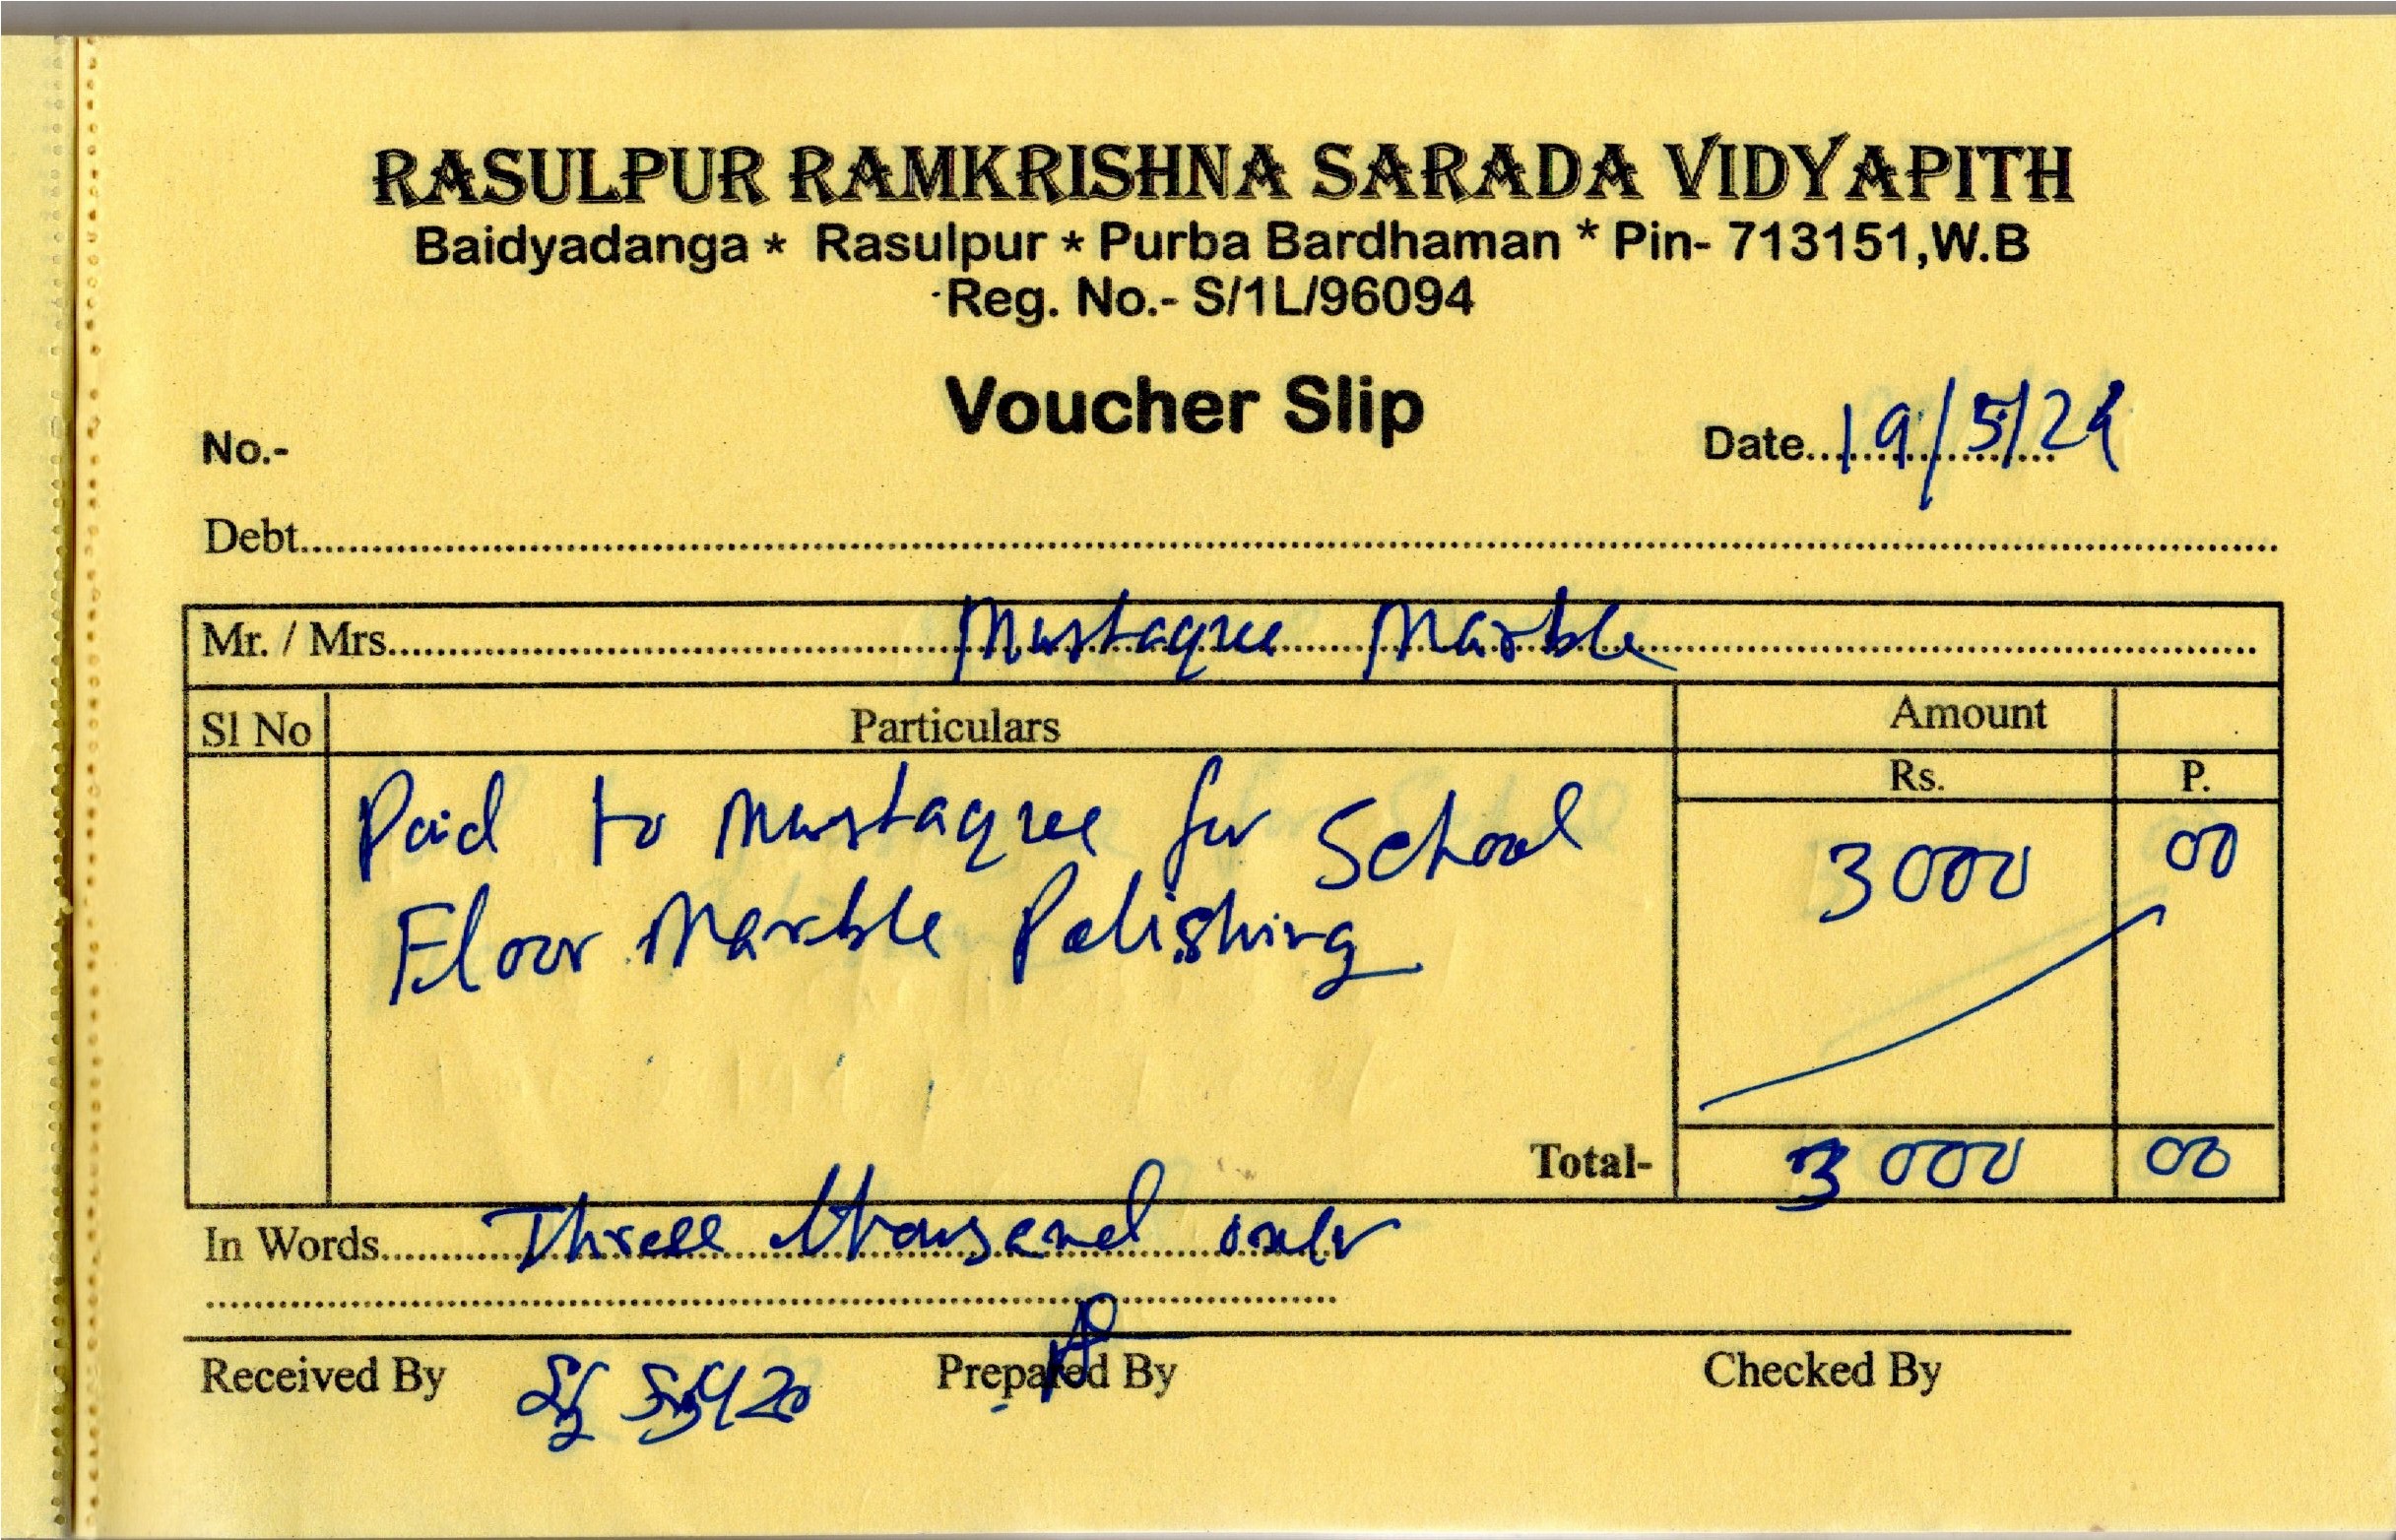 RASULPUR RAMKRISHNA SARADA VIDYAPITH
Baidyadanga * Rasulpur * Purba Bardhaman * Pin- 713151,W.B
Reg. No.- S/1L/96094
Voucher Slip
No.-
Date 19/5/24
Debt
Mr. / Mrs. Mustaqree Marble
Sl No Particulars Amount
Rs. P.
Paid to Mustaqree for School 3000 00
Floor Marble Polishing
Total- 3000 00
In Words Three thousand only
Received By Prepared By Checked By